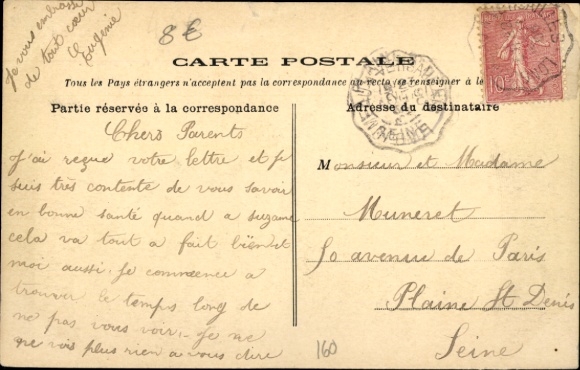 Je vous embrasse
de tout cœur
Eugénie
8€
CARTE POSTALE
Tous les Pays étrangers n'acceptent pas la correspondance au recto (se renseigner à le
Partie réservée à la correspondance
Adresse du destinataire
10
Chers Parents
J'ai reçue votre lettre et je
suis très contente de vous savoir
en bonne santé quand a suzanne
cela va tout a fait bien et
moi aussi. Je commence a
trouver le temps long de
ne pas vous voir. Je ne
ne vois plus rien a vous dire
Monsieur et Madame
Muneret
50 avenue de Paris
Plaine St Denis
Seine
160